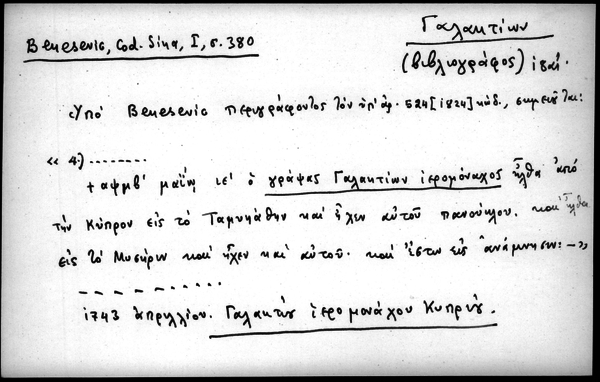 Γαλακτίων
Benesevic, Cod. Sina, I, σ. 380
(βιβλιογράφος) ιηαι.
Ὑπό Benesevic περιγράφοντος τόν ὑπ' ἀρ. 524 [1824] κώδ., σημειοῦται:
« 4.) ........
+ αψμβ' μαΐῳ ιε' ὁ γράψας Γαλακτίων ἱερομόναχος ἦλθα ἀπό
τήν Κύπρον εἰς τό Ταμιάθην καί ἦχεν αὐτοῦ πανούκλον. καί ἦλθα
εἰς τό Μυσήριν καί ἦχεν καί αὐτοῦ. καί ἔστω εἰς ἀνάμνησιν: – »
1743 ἀπριλλίου. Γαλακτίου ἱερομονάχου Κυπρίου.